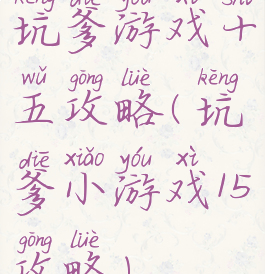 kēng diē yóu xì shí
坑爹游戏十
wǔ gōng lüè kēng
五攻略(坑
diē xiǎo yóu xì
爹小游戏15
gōng lüè
攻略)